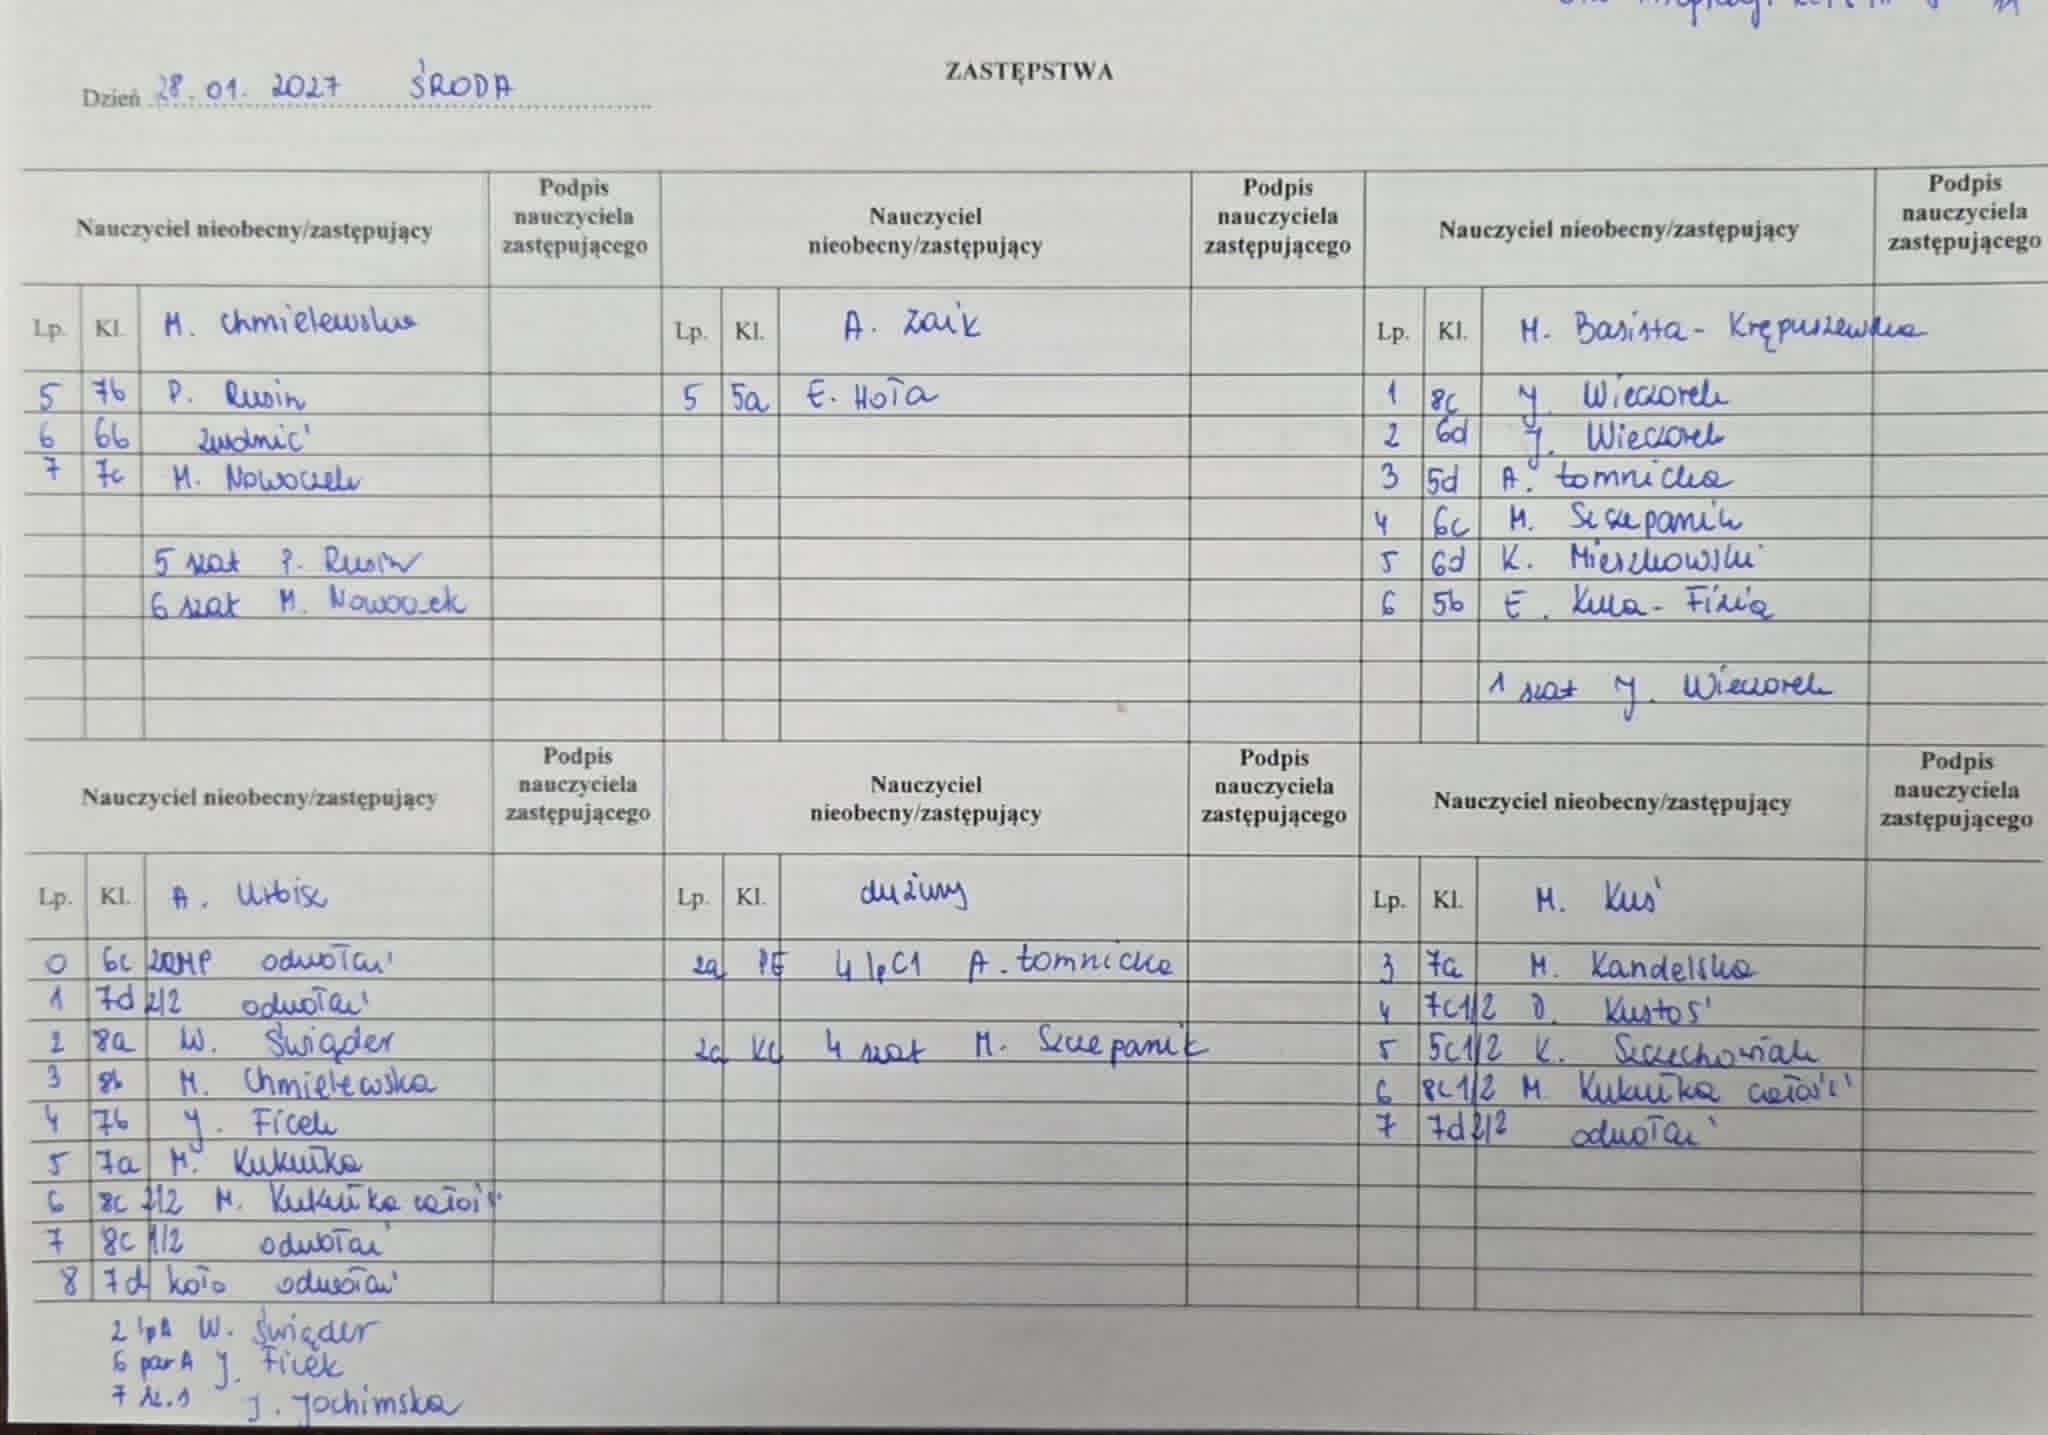 ZASTĘPSTWA
Dzień 28.01. 2027 ŚRODA
Nauczyciel nieobecny/zastępujący
Podpis nauczyciela zastępującego
Nauczyciel nieobecny/zastępujący
Podpis nauczyciela zastępującego
Nauczyciel nieobecny/zastępujący
Podpis nauczyciela zastępującego
Lp. Kl. M. Chmielewska
5 7b P. Rusin
6 6b zwolnić
7 7c M. Nowoczek
5 szat P. Rusin
6 szat M. Nowoczek
Lp. Kl. A. Zaik
5 5a E. Hoła
Lp. Kl. M. Basista-Krępuszewska
1 8c J. Wieczorek
2 6d J. Wieczorek
3 5d A. Łomnicka
4 6c M. Szczepanik
5 6d K. Mierzkowski
6 5b E.
1 szat J. Wieczorek
Nauczyciel nieobecny/zastępujący
Podpis nauczyciela zastępującego
Nauczyciel nieobecny/zastępujący
Podpis nauczyciela zastępującego
Nauczyciel nieobecny/zastępujący
Podpis nauczyciela zastępującego
Lp. Kl. A. Urbisz
0 6c odwołać
1 7d 2/2 odwołać
2 8a W. Świąder
3 8b M. Chmielewska
4 7b J. Ficek
5 7a M. Kukułka
6 8c 2/2 M. Kukułka całość
7 8c 1/2 odwołać
8 7d koło odwołać
2 W. Świąder
6 par A J. Ficek
7 J. Jochimska
Lp. Kl. dyżury
za 4 A. Łomnicka
za 4 szat M. Szczepanik
Lp. Kl. M. Kuś
3 7a M. Kandelska
4 7c1/2 D. Kustoś
5 5c1/2 K. Szczechowiak
6 8c 1/2 M. Kukułka całość
7 7d 2/2 odwołać